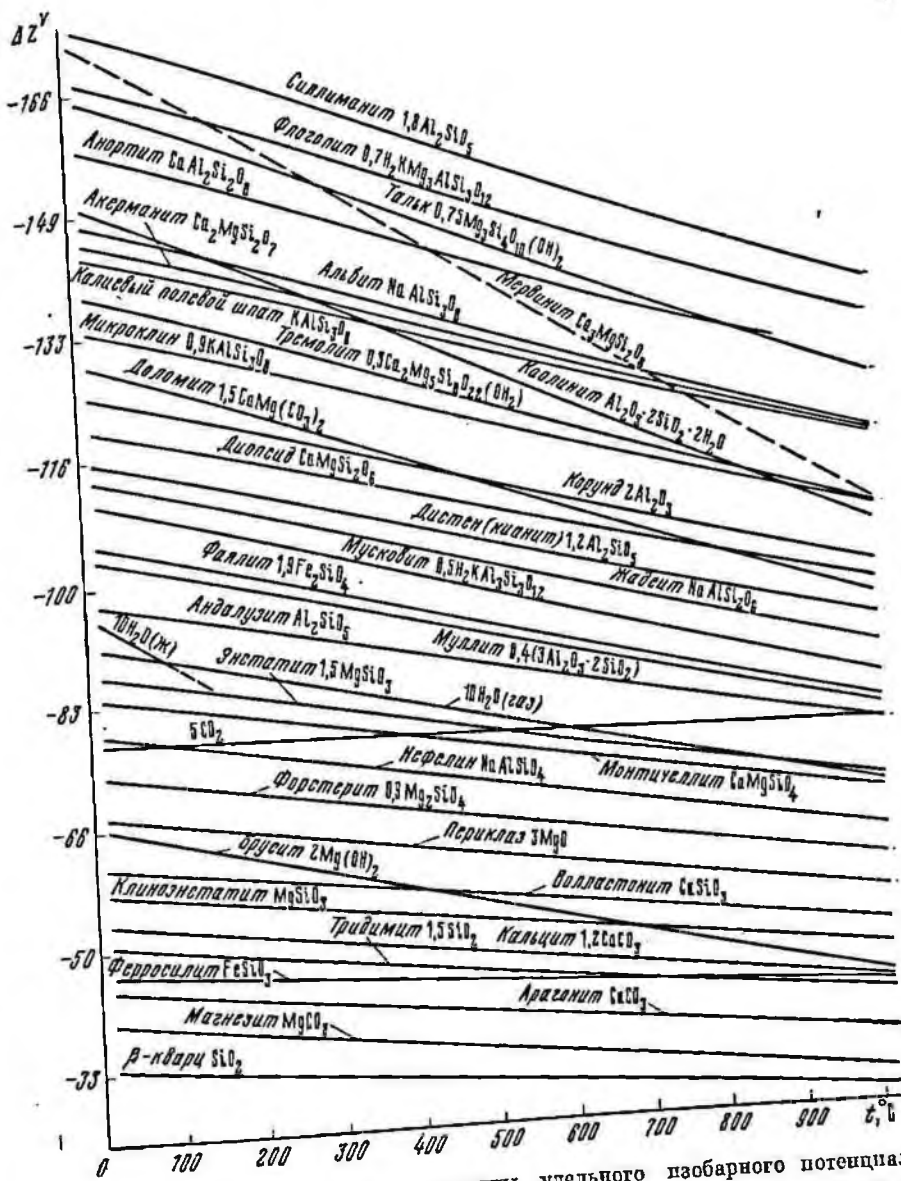 ΔZᵛ
Силлиманит 1,8Al₂SiO₅
-166
Флоголит 0,7H₂KMg₃AlSi₃O₁₂
Анортит CaAl₂Si₂O₈
Тальк 0,75Mg₃Si₄O₁₀(OH)₂
-149
Акерманит Ca₂MgSi₂O₇
Альбит NaAlSi₃O₈
Мервинит Ca₃MgSi₂O₈
Калиевый полевой шпат KAlSi₃O₈
-133
Микроклин 0,9KAlSi₃O₈
Тремолит 0,3Ca₂Mg₅Si₈O₂₂(OH₂)
Каолинит Al₂O₃·2SiO₂·2H₂O
Доломит 1,5CaMg(CO₃)₂
-116
Диопсид CaMgSi₂O₆
Корунд 2Al₂O₃
Дистен (кианит) 1,2Al₂SiO₅
Фаялит 1,9Fe₂SiO₄
Мусковит 0,5H₂KAl₃Si₃O₁₂
Жадеит NaAlSi₂O₆
-100
Андалузит Al₂SiO₅
Муллит 0,4(3Al₂O₃·2SiO₂)
10H₂O(ж)
Энстатит 1,5MgSiO₃
10H₂O(газ)
-83
5CO₂
Нефелин NaAlSiO₄
Монтичеллит CaMgSiO₄
Форстерит 0,9Mg₂SiO₄
-66
Периклаз 3MgO
Брусит 2Mg(OH)₂
Волластонит CaSiO₃
Клиноэнстатит MgSiO₃
Тридимит 1,5SiO₂
Кальцит 1,2CaCO₃
-50
Ферросилит FeSiO₃
Арагонит CaCO₃
Магнезит MgCO₃
β-кварц SiO₂
-33
0 100 200 300 400 500 600 700 800 900 t,°C
удельного изобарного потенциал